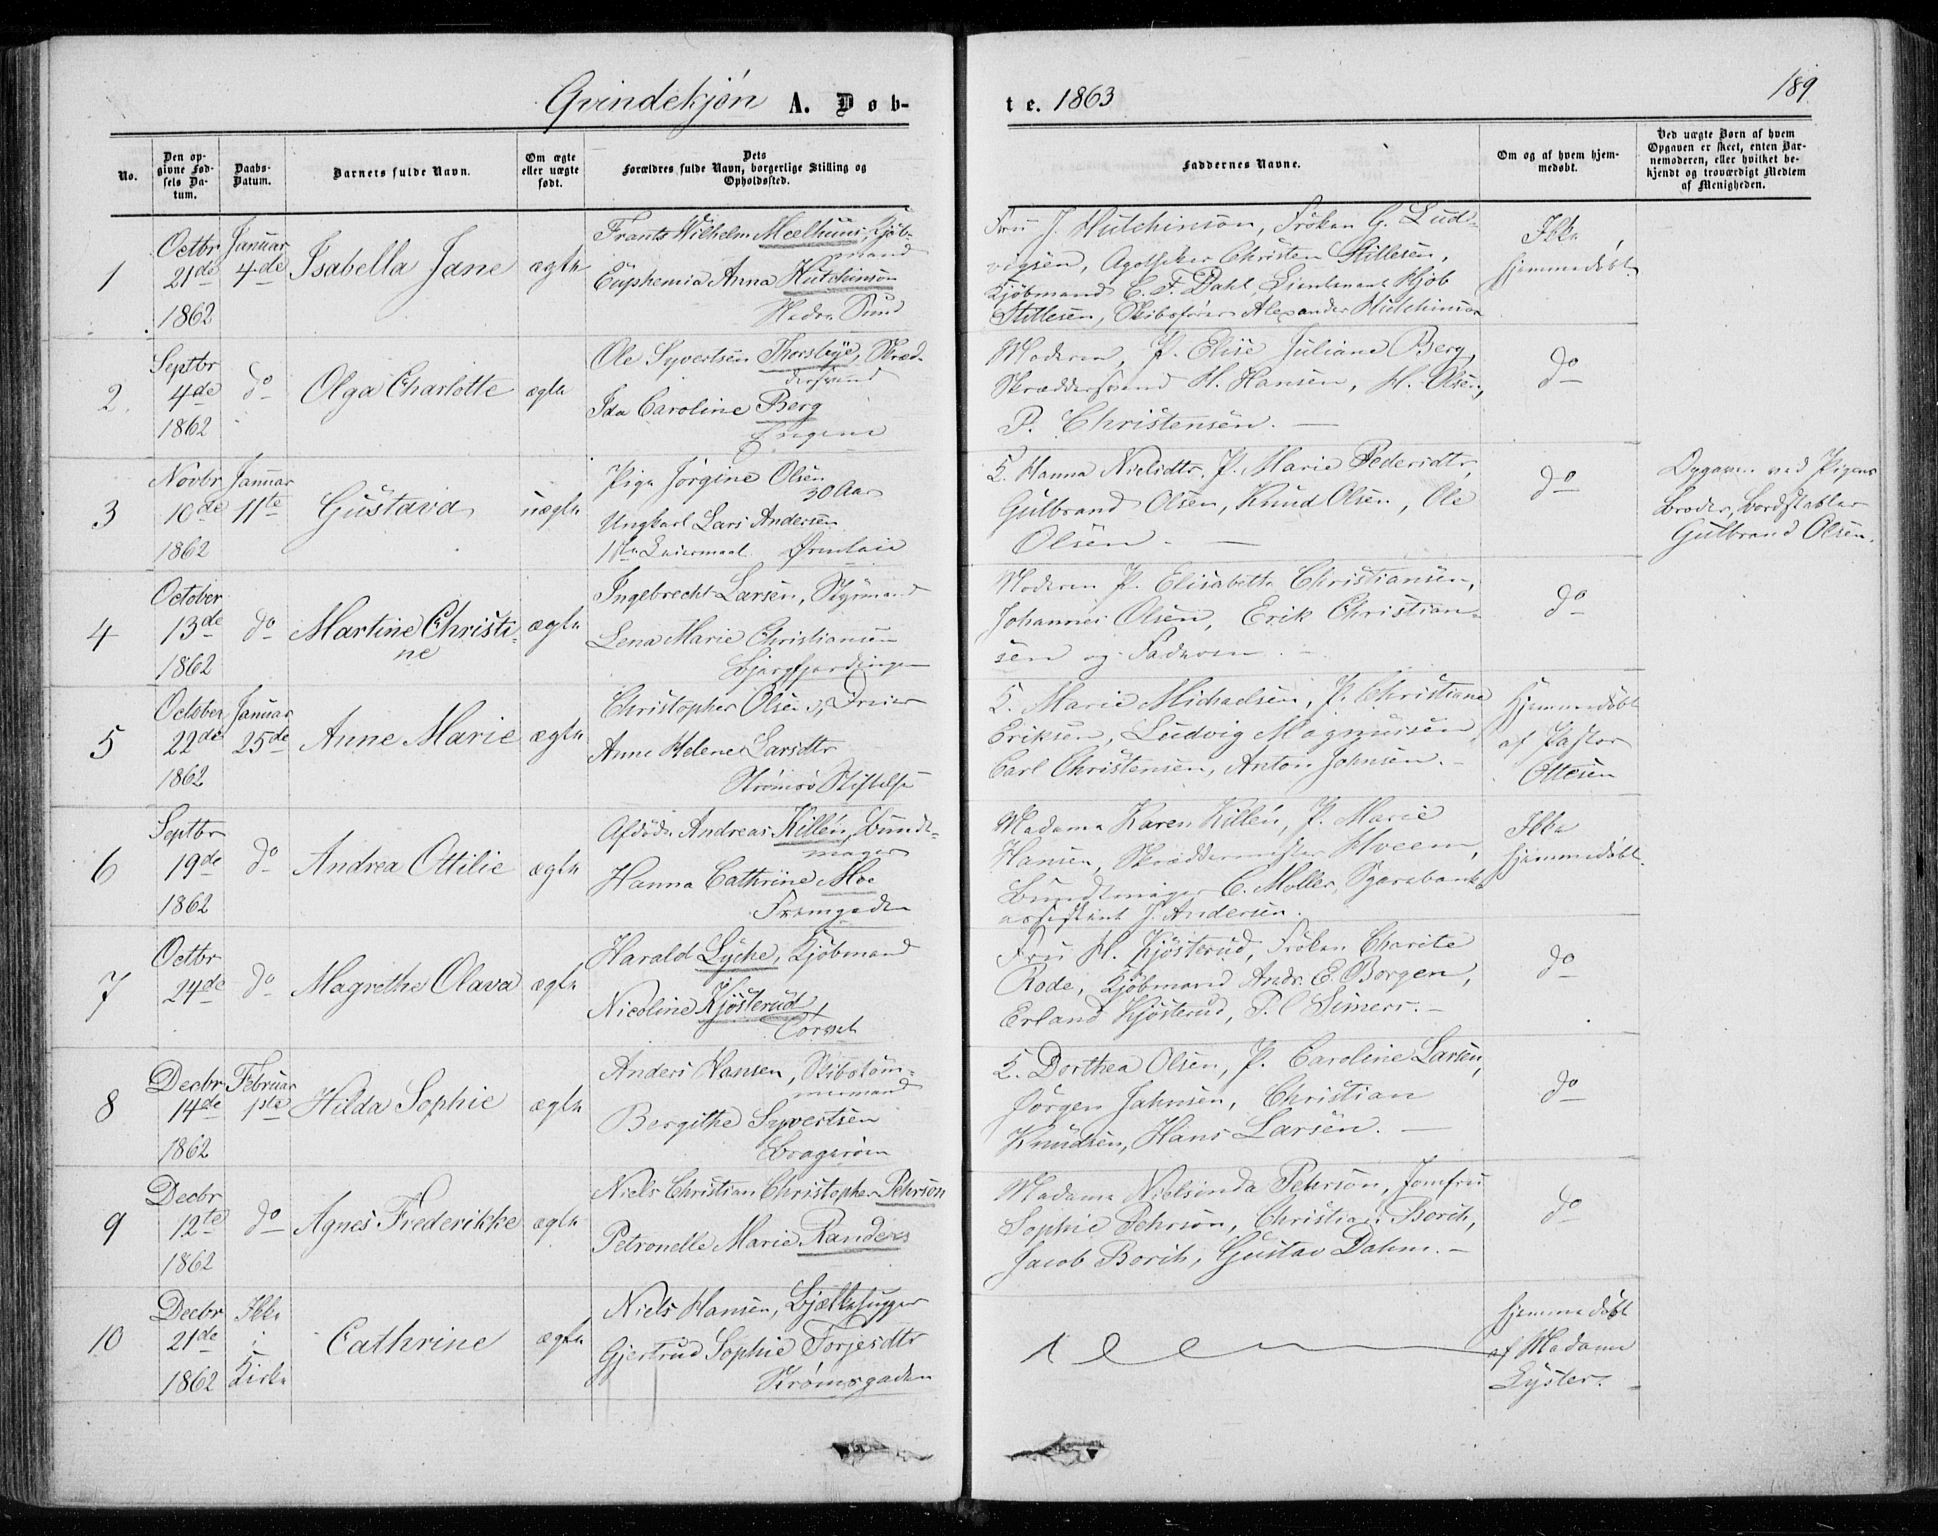 Qvindekjøn A. Døb-
te. 1863
189
No.
Den opgivne Fødsels Datum.
Daabs-Datum.
Barnets fulde Navn.
Om ægte eller uægte født.
Dets Forældres fulde Navn, borgerlige Stilling og Opholdssted.
Faddernes Navne.
Om og af hvem hjemmedøbt.
Ved uægte Børn af hvem Opgaven er skeet, enten Barnemoderen, eller hvilket bekjendt og troværdigt Medlem af Menigheden.
1
Octbr 21de 1862
Januar 4de
Isabella Jane
ægte
Frants Wilhelm Mælhuus, Kjøb-
mand
Euphemia Anna Hutchinson
Sund
Fru J. Hutchinson, Frøken G. Lud-
vigsen, Apotheker Christen Stillesen,
Kjøbmand C. F. Dahl, Lieutenant Kjøb
Stillesen, Skibsfører Alexander Hutchinson
Ikke
hjemmedøbt
2.
Septbr 4de 1862
do
Olga Charlotte
ægte
Ole Syvertsen Thorsbye, Skræd-
dersvend
Ida Caroline Berg
Moderen, P. Elise Juliane Berg,
Skræddersvend H. Hansen, H. Olsen,
P. Christensen. —
do
3
Novbr 10de 1862
Januar 11te
Gustava
uægte
Pige Jørgine Olsen
30 Aar
Ungkarl Lars Andersen
1ste Leiermaal
K. Hanna Nielsdtr, P. Marie Pedersdtr,
Gulbrand Olsen, Knud Olsen, Ole
Olsen. —
do
Opgaven ved Pigens
Broder, Bordstabler
Gulbrand Olsen.
4
October 13de 1862
do
Martine Christi-
ne
ægte
Ingebrecht Larsen, Styrmand
Lena Marie Christiansen
Bjergfjerdingen
Moderen, P. Elisabeth Christiansen,
Johannes Olsen, Erik Christian-
sen og Faderen. —
do
5
October 22de 1862
Januar 25de
Anne Marie
ægte
Christopher Olsen, Dreier
Anne Helene Larsdtr
Strømsø Stiftelse
K. Marie Michaelsen, P. Christiane
Eriksen, Ludvig Magnussen,
Carl Christensen, Anton Johnsen. —
Hjemmedøbt
af Pastor
Ottesen
6
Septbr 19de 1862
do
Andrea Ottilie
ægte
Afdøde Andreas Killén, Bundt-
mager
Hanna Cathrine Moe
Madame Karen Killén, P. Marie
Hansen, Skræddermester Hveem,
Bundtmager C. Møller, Sparebank
assistent J. Andersen.
Ikke
hjemmedøbt.
7
Octbr 24de
do
Magrethe Olava
ægte
Harald Lyche, Kjøbmand
Nicoline Kjøsterud
Torvet
Fru H. Kjøsterud, Frøken Charite
Rode, Kjøbmand Andr. E. Borgen,
Erland Kjøsterud, P. C Simers. —
do
8
Decbr 14de 1862
Februar 1ste
Hilda Sophie
ægte
Anders Hansen, Skibstøm-
mermand
Bergithe Syvertsen
Bragerøen
K. Dorthea Olsen, P. Caroline Larsen,
Jørgen Jahnsen, Christian
Knudsen, Hans Larsen. —
do
9
Decbr 12te 1862
do
Agnes Frederikke
ægte
Niels Christian Christopher Pehrson
Petronelle Marie Randers
Madame Nielsinda Pehrson, Jomfru
Sophie Pehrson, Christian Borch,
Jacob Borch, Gustav Dahm. —
do
10
Decbr 21de 1862
Ikke i Kirke
Cathrine
ægte
Niels Hansen, Bjælkehugger
Gjertrud Sophie Torjesdtr
Strømsgaden
hjemmedøbt
af Madame
Kyster.